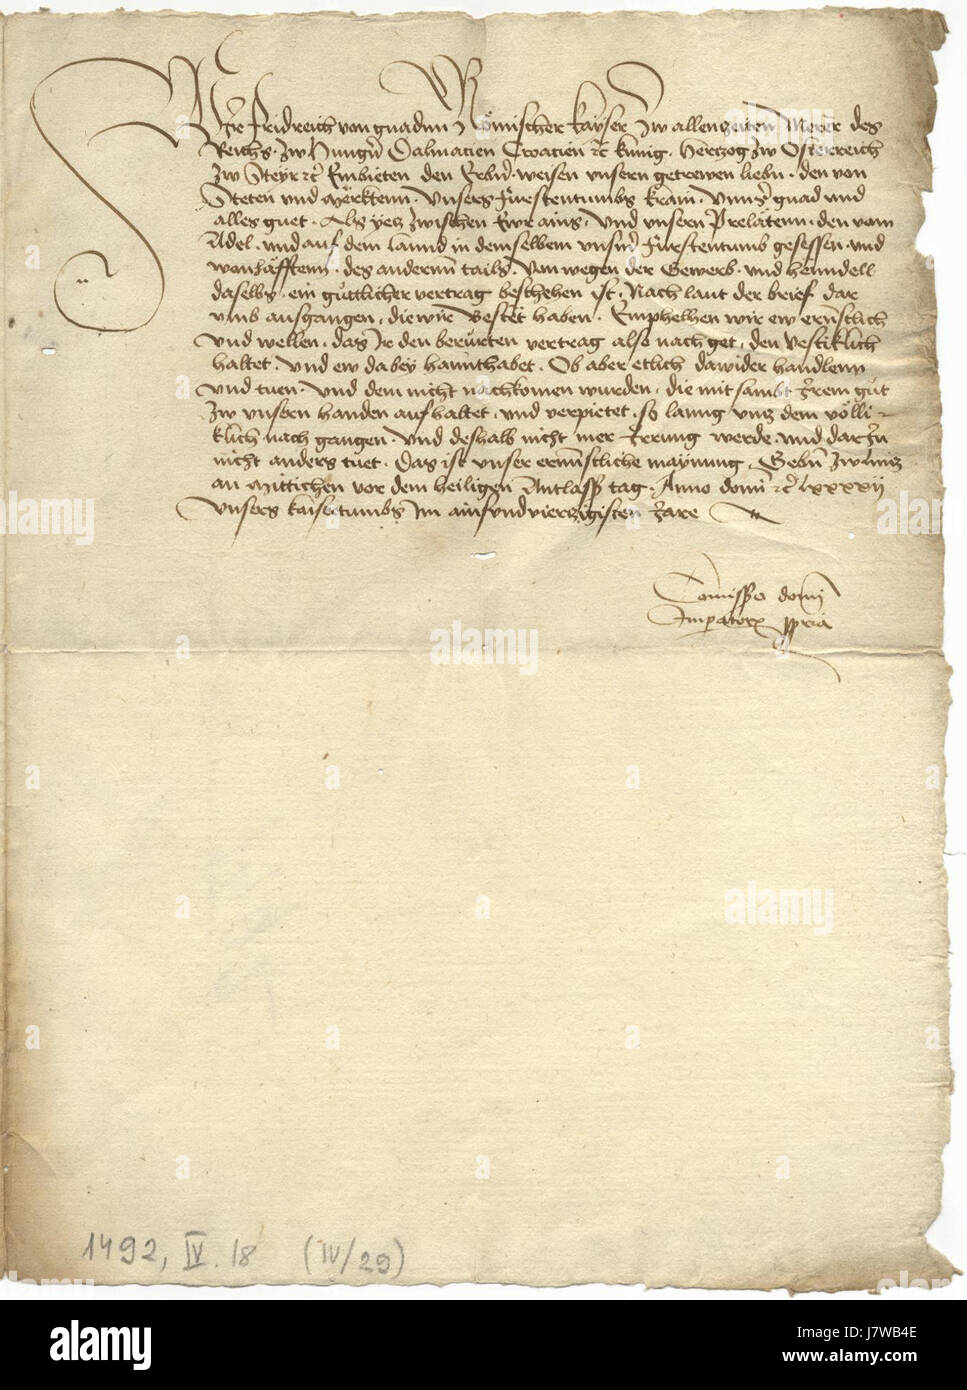 Wir Fridreich von gnaden Römischer Kayser Zw allenzeiten Merer des
Reichs, Zw Hungrn Dalmacien Croacien etc kunig, Hertzog Zw Österreich
Zw Steyr etc Embieten den Erbn, weisen unsern getrewen liebn, den von
Steten und Merktenn, unsers Fürstentumbs Krain, unnser gnad und
alles guet, Als yetz zwischen Ewr ains, und unsern Prelätenn, den vom
Adel, und auf dem lannd in demselbem unsrm Fürstentumb gesessen, und
wonhäfftenn, des andernn tails, von wegen der Gewerb, und henndell
daselbs, ein güttlicher vertrag beschehen ist, Nach laut der brief dar
umb ausgangen, die wir bestët haben, Emphelhen wir ew ernstlich
und wellen, das Ir den berürten vertrag also nachget, den vestiklich
haltet, und ew dabey hannthabet, Ob aber etlich dawider handlenn
und tuen, und dem nicht nachkomen wurden, die mit sambt Irem gut
Zw unsern handen aufhaltet, und verpietet, so lanng unz dem völli-
klich nach gangen, und deshalb nicht mer Irrung werde, und darInn
nicht anders tuet, Das ist unser ernnstliche maynung, Gebn zw Linz
an Mittichen vor dem heiligen Antlasß tag, Anno domi etc lxxxxij
Unsers kaisertumbs Im ainsundvierzigisten Jare
Comissio domi
Imperatoris ppria
1492, IV. 18 (IV/29)
alamy
Image ID: J7WB4E
www.alamy.com